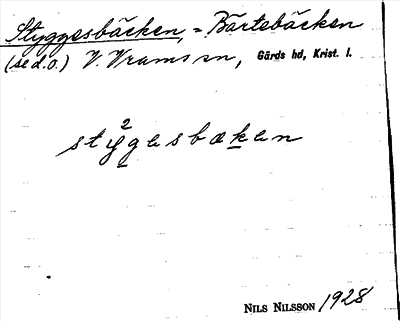 Styggesbäcken, = Bärtebäcken
(se d.o.) V. Vrams sn, Gärds hd, Krist. l.
sty²gesbæken
NILS NILSSON 1928